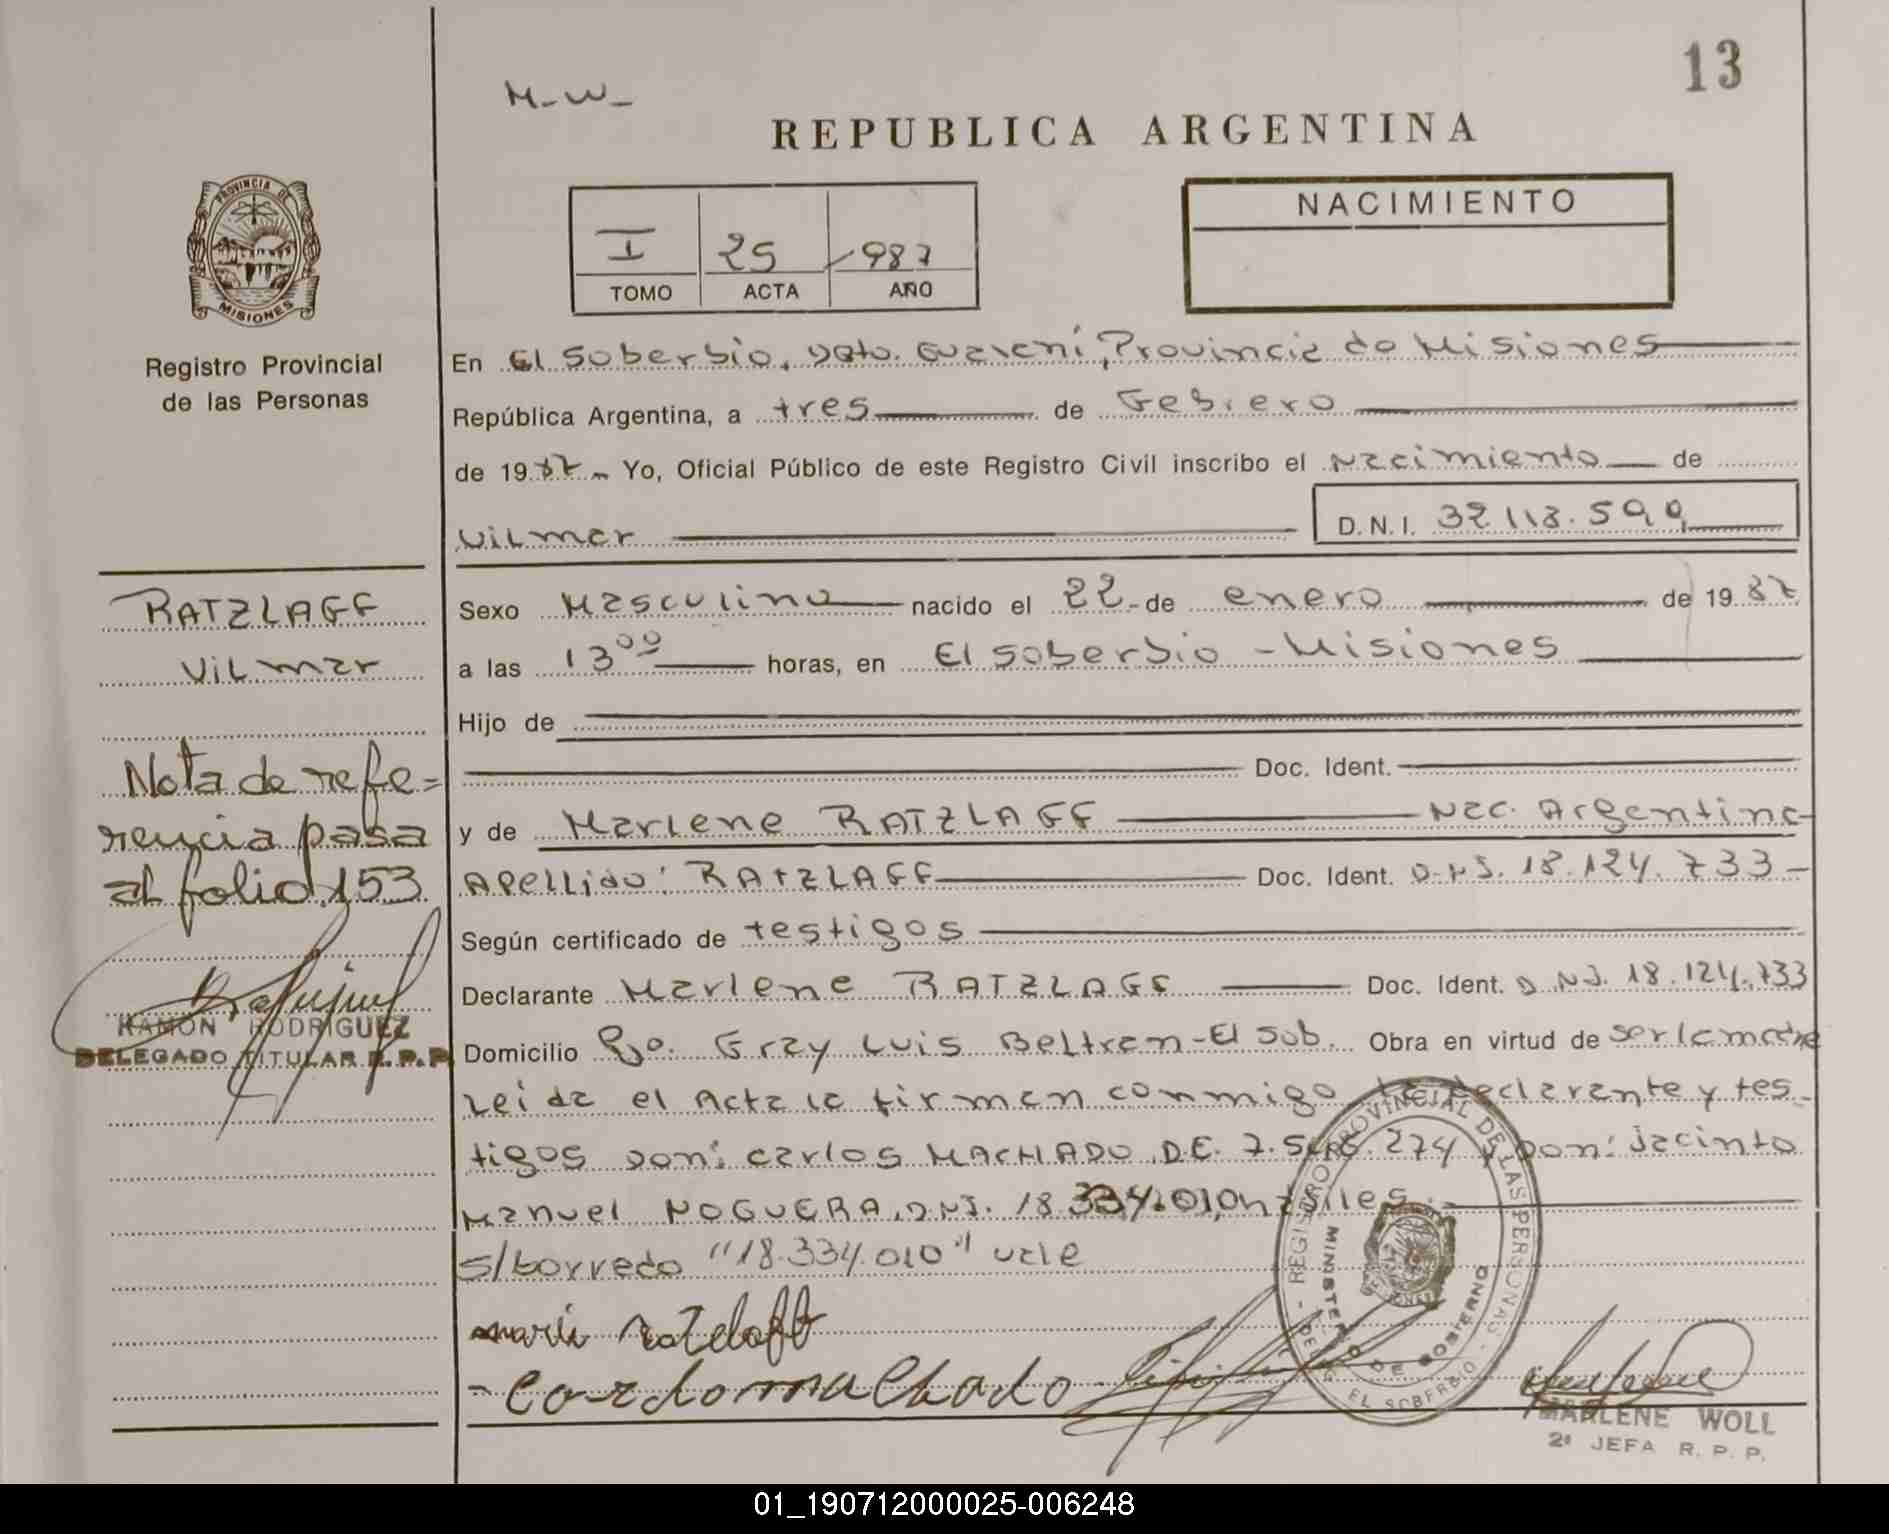 13
M-W-
REPUBLICA ARGENTINA
PROVINCIA DE
MISIONES
I 25 1987
TOMO ACTA AÑO
NACIMIENTO
Registro Provincial
de las Personas
En El Soberbio, Dpto. Guarani, Provincia de Misiones
República Argentina, a tres de Febrero
de 1987 Yo, Oficial Público de este Registro Civil inscribo el Nacimiento de
Vilmar D.N.I. 32.113.599
RATZLAFF
Vilmar
Sexo Masculino nacido el 22 de enero de 1987
a las 13 00 horas, en El Soberbio - Misiones
Hijo de
Doc. Ident.
y de Marlene RATZLAFF Nac. Argentina
Apellido: RATZLAFF Doc. Ident. D.N.I. 18.124.733
Según certificado de testigos
Declarante Marlene RATZLAFF Doc. Ident. D.N.I. 18.124.733
Domicilio Bo. Fray Luis Beltran - El Sob. Obra en virtud de ser la madre
Leida el Acta la firman conmigo la declarante y tes-
tigos don: Carlos MACHADO D.E. 274 y Don: Jacinto
Manuel NOGUERA, D.N.I. 18.334.010, hábiles.
s/borrado "18.334.010" vale
Nota de refe=
rencia pasa
al folio 153
RAMON RODRIGUEZ
DELEGADO TITULAR R.P.P.
REGISTRO PROVINCIAL DE LAS PERSONAS
MINISTERIO DE GOBIERNO
DELEG. EL SOBERBIO
MARLENE WOLL
2ª JEFA R. P. P.
01_190712000025-006248